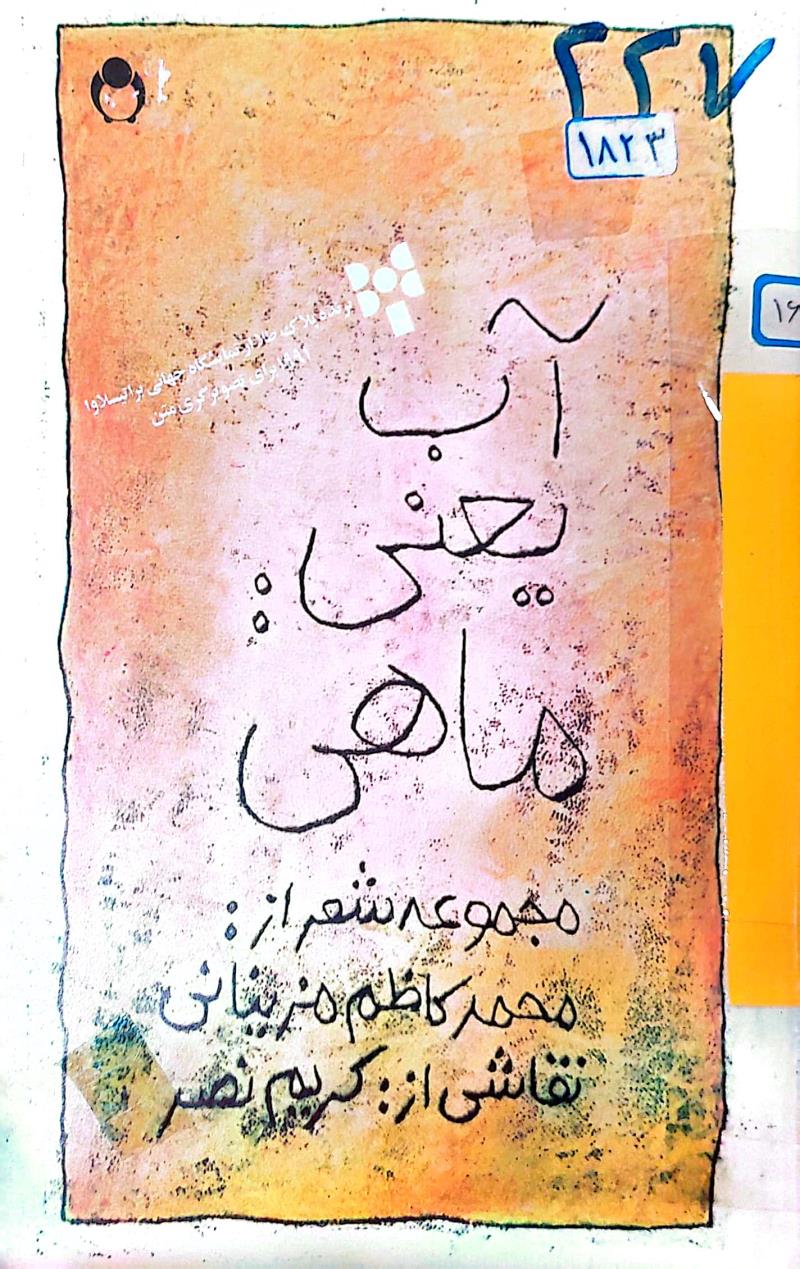 ۲۲۷
۱۸۲۳
۱۶
برنده پلاک طلا از نمایشگاه جهانی براتیسلاوا
برای تصویرگری متن
آب
یعنی
ماهی:
مجموعه شعر از:
محمد کاظم مزینانی
نقاشی از: کریم نصر